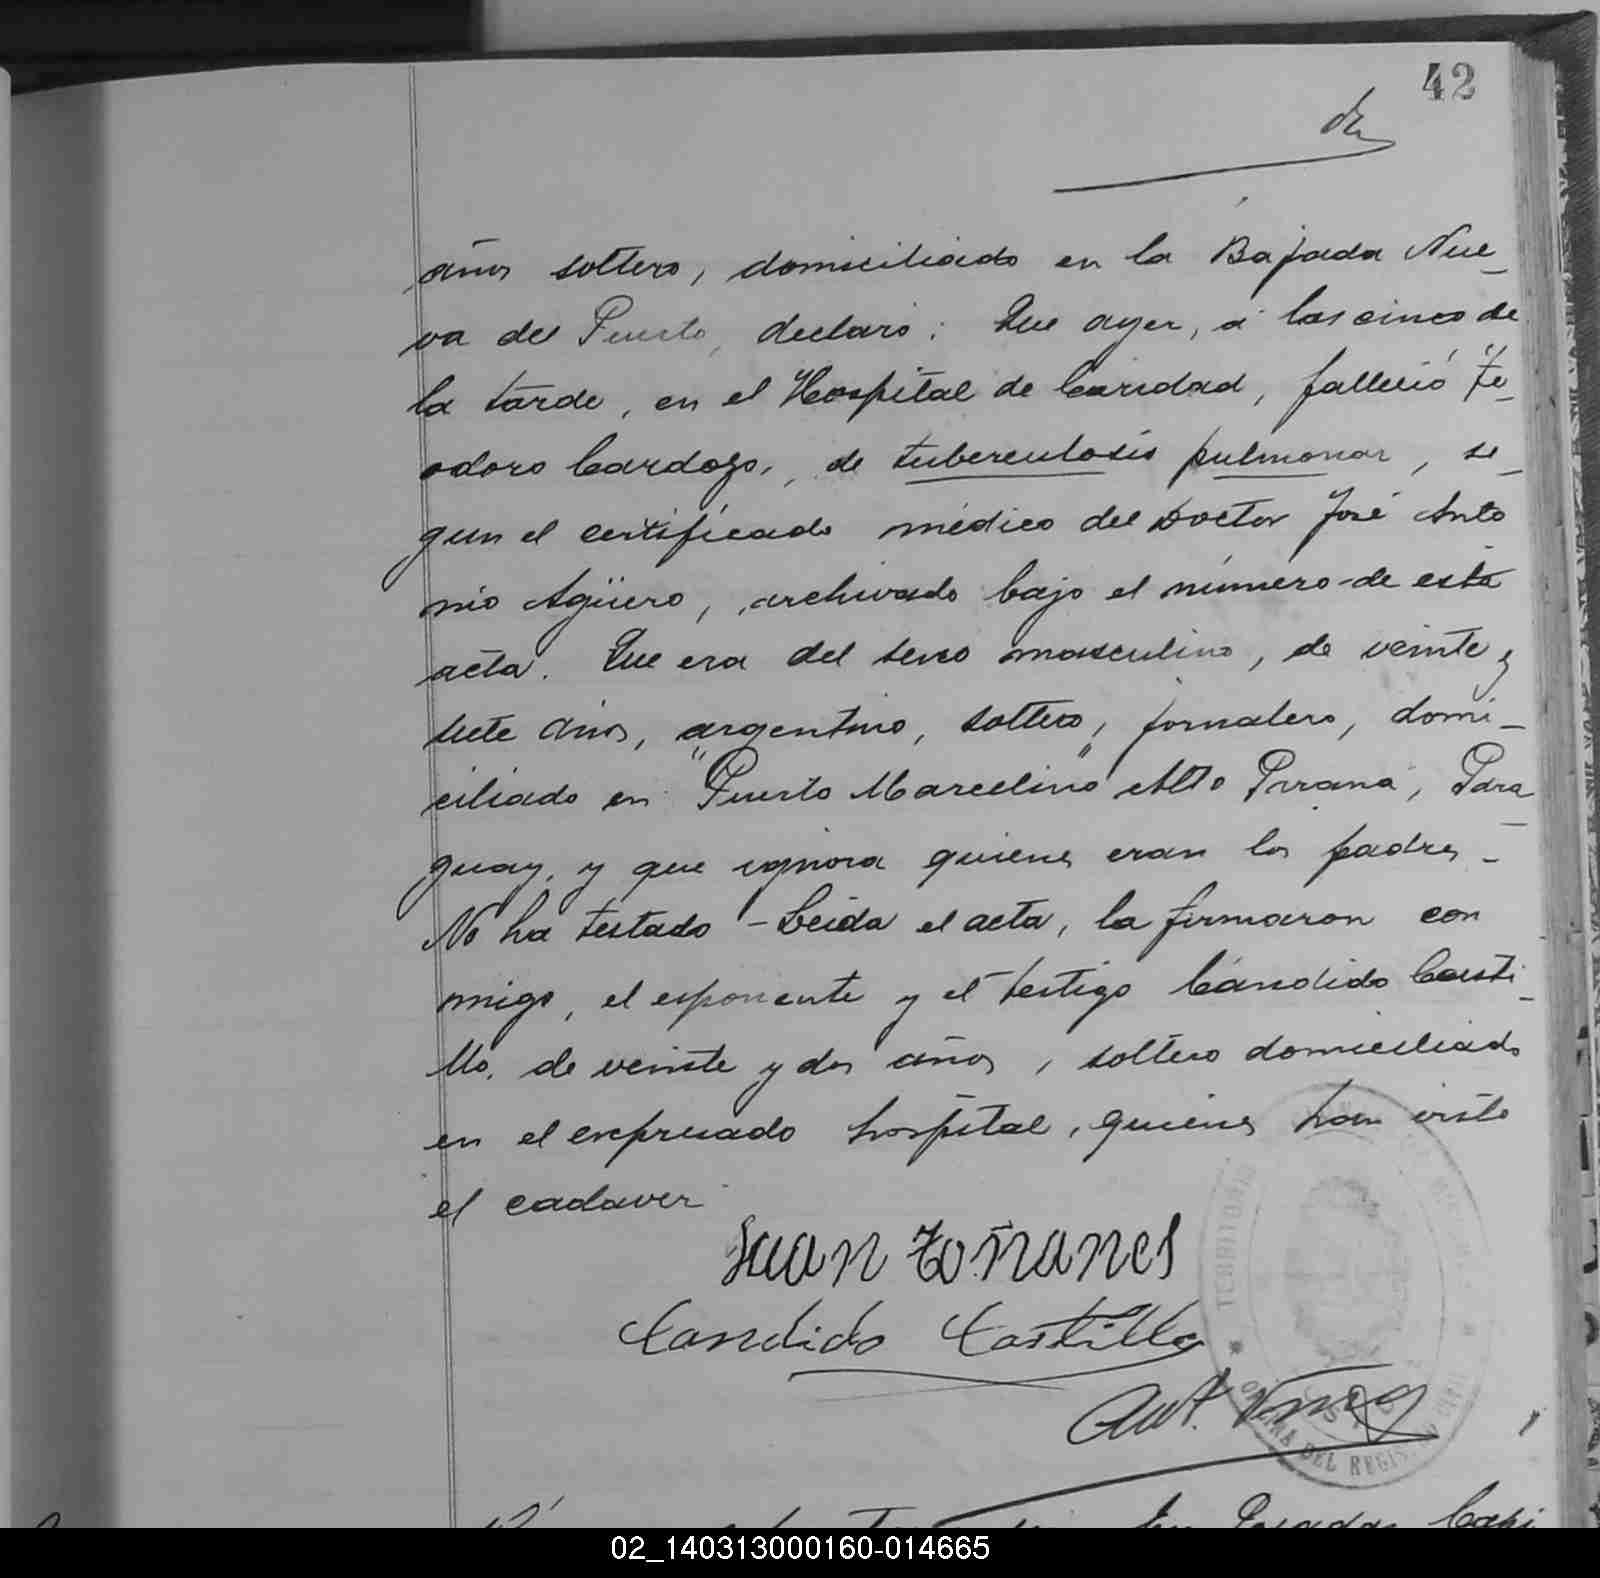 42
años soltero, domiciliado en la Bajada Nue_
va del Puerto, declaró: Que ayer, á las cinco de
la tarde, en el Hospital de Caridad, falleció Te_
odoro Cardozo, de tuberculosis pulmonar, se_
gun el certificado médico del Doctor José Anto
nio Agüero, archivado bajo el número de esta
acta. Que era del sexo masculino, de veinte y
siete años, argentino, soltero, jornalero, domi_
ciliado en "Puerto Marcelino" Alto Paraná, Para_
guay, y que ignora quienes eran los padres_
No ha testado - Leida el acta, la firmaron con
migo, el esponente y el testigo Cándido Casti_
llo, de veinte y dos años, soltero domiciliado
en el expresado hospital, quienes han visto
el cadaver
Juan Toñanes
Candido Castillo
Ant.
TERRITORIO
DEL REGIS
En Posadas Capi
02_140313000160-014665